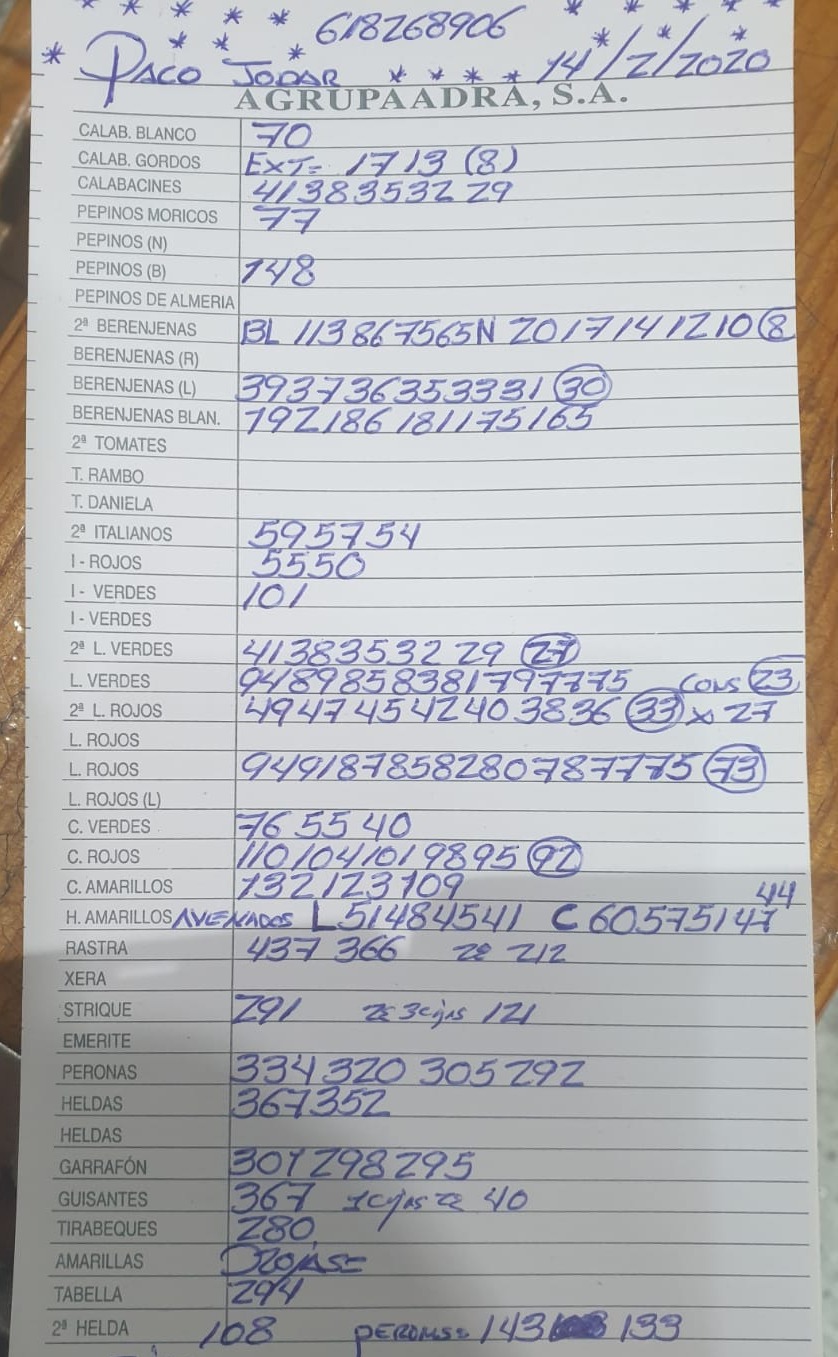 618268906
PACO JODAR 14/2/2020
AGRUPAADRA, S.A.
CALAB. BLANCO 70
CALAB. GORDOS EXT= 1713 (8)
CALABACINES 4138353229
PEPINOS MORICOS 77
PEPINOS (N)
PEPINOS (B) 148
PEPINOS DE ALMERIA
2ª BERENJENAS BL 113867565N 20171412108
BERENJENAS (R)
BERENJENAS (L) 39373635333130
BERENJENAS BLAN. 192186181175165
2ª TOMATES
T. RAMBO
T. DANIELA
2ª ITALIANOS 595754
I - ROJOS 5550
I - VERDES 101
I - VERDES
2ª L. VERDES 4138353229 27
L. VERDES 9489858381797775 CONS 23
2ª L. ROJOS 4947454240383633 x 27
L. ROJOS
L. ROJOS 949187858280787775 73
L. ROJOS (L)
C. VERDES 765540
C. ROJOS 1101041019895 92
C. AMARILLOS 132123109
H. AMARILLOS L 51484541 C 6057514744
RASTRA 437 366 2ª 212
XERA
STRIQUE 291 121
EMERITE
PERONAS 334 320 305 292
HELDAS 367352
HELDAS
GARRAFÓN 301298295
GUISANTES 367 40
TIRABEQUES 280
AMARILLAS
TABELLA 294
2ª HELDA 108 PERONAS= 143 133